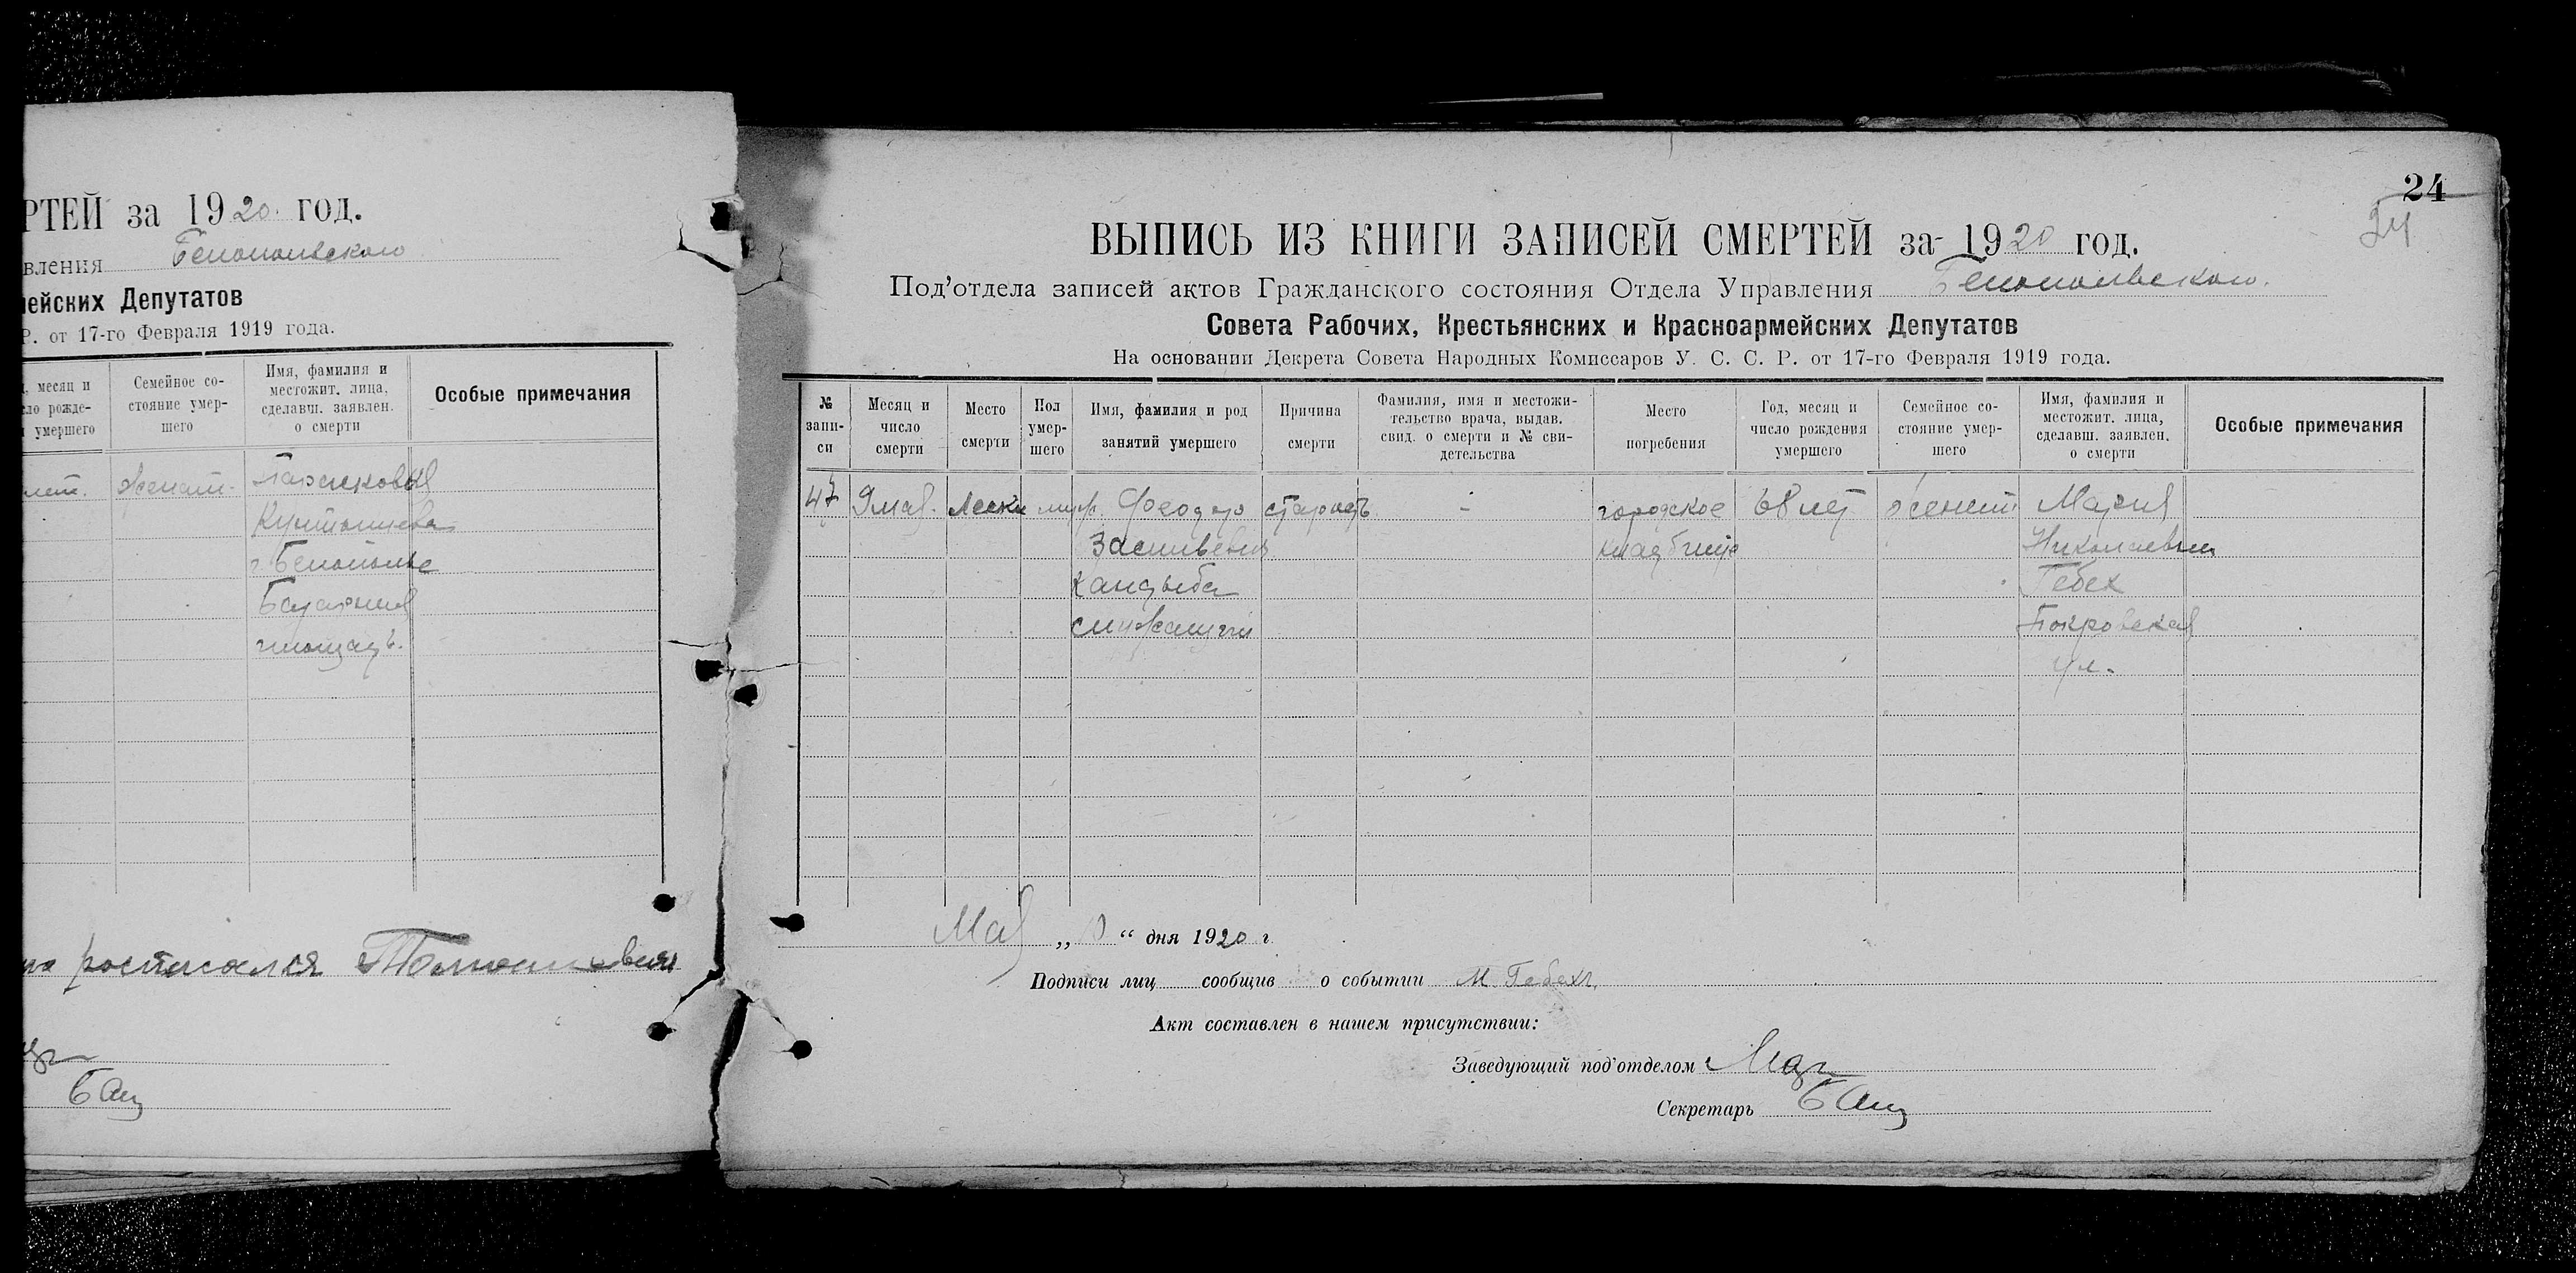 РТЕЙ за 1920 год.
вления Белопольского
мейских Депутатов
Р. от 17-го Февраля 1919 года.
месяц и
ло рожде-
умершего
Семейное со-
стояние умер-
шего
Имя, фамилия и
местожит. лица,
сделавш. заявлен.
о смерти
Особые примечания
лет.
женат.
г. Белополье
Базарная
площадь.
росписался
24
24
ВЫПИСЬ ИЗ КНИГИ ЗАПИСЕЙ СМЕРТЕЙ за 1920 год.
Под'отдела записей актов Гражданского состояния Отдела Управления Белопольского.
Совета Рабочих, Крестьянских и Красноармейских Депутатов
На основании Декрета Совета Народных Комиссаров У. С. С. Р. от 17-го Февраля 1919 года.
№
запи-
си
Месяц и
число
смерти
Место
смерти
Пол
умер-
шего
Имя, фамилия и род
занятий умершего
Причина
смерти
Фамилия, имя и местожи-
тельство врача, выдав.
свид. о смерти и № сви-
детельства
Место
погребения
Год, месяц и
число рождения
умершего
Семейное со-
стояние умер-
шего
Имя, фамилия и
местожит. лица,
сделавш. заявлен.
о смерти
Особые примечания
47
9 мая.
Лески
муж.
Феодор
Васильевич
Кандыба
служащий
старость
-
городское
кладбище
68 лет
женат
Мария
Николаевна
Гебех
Покровская
ул.
Мая „ “ дня 1920 г.
Подписи лиц сообщив о событии М. Гебех.
Акт составлен в нашем присутствии:
Заведующий под'отделом
Секретарь